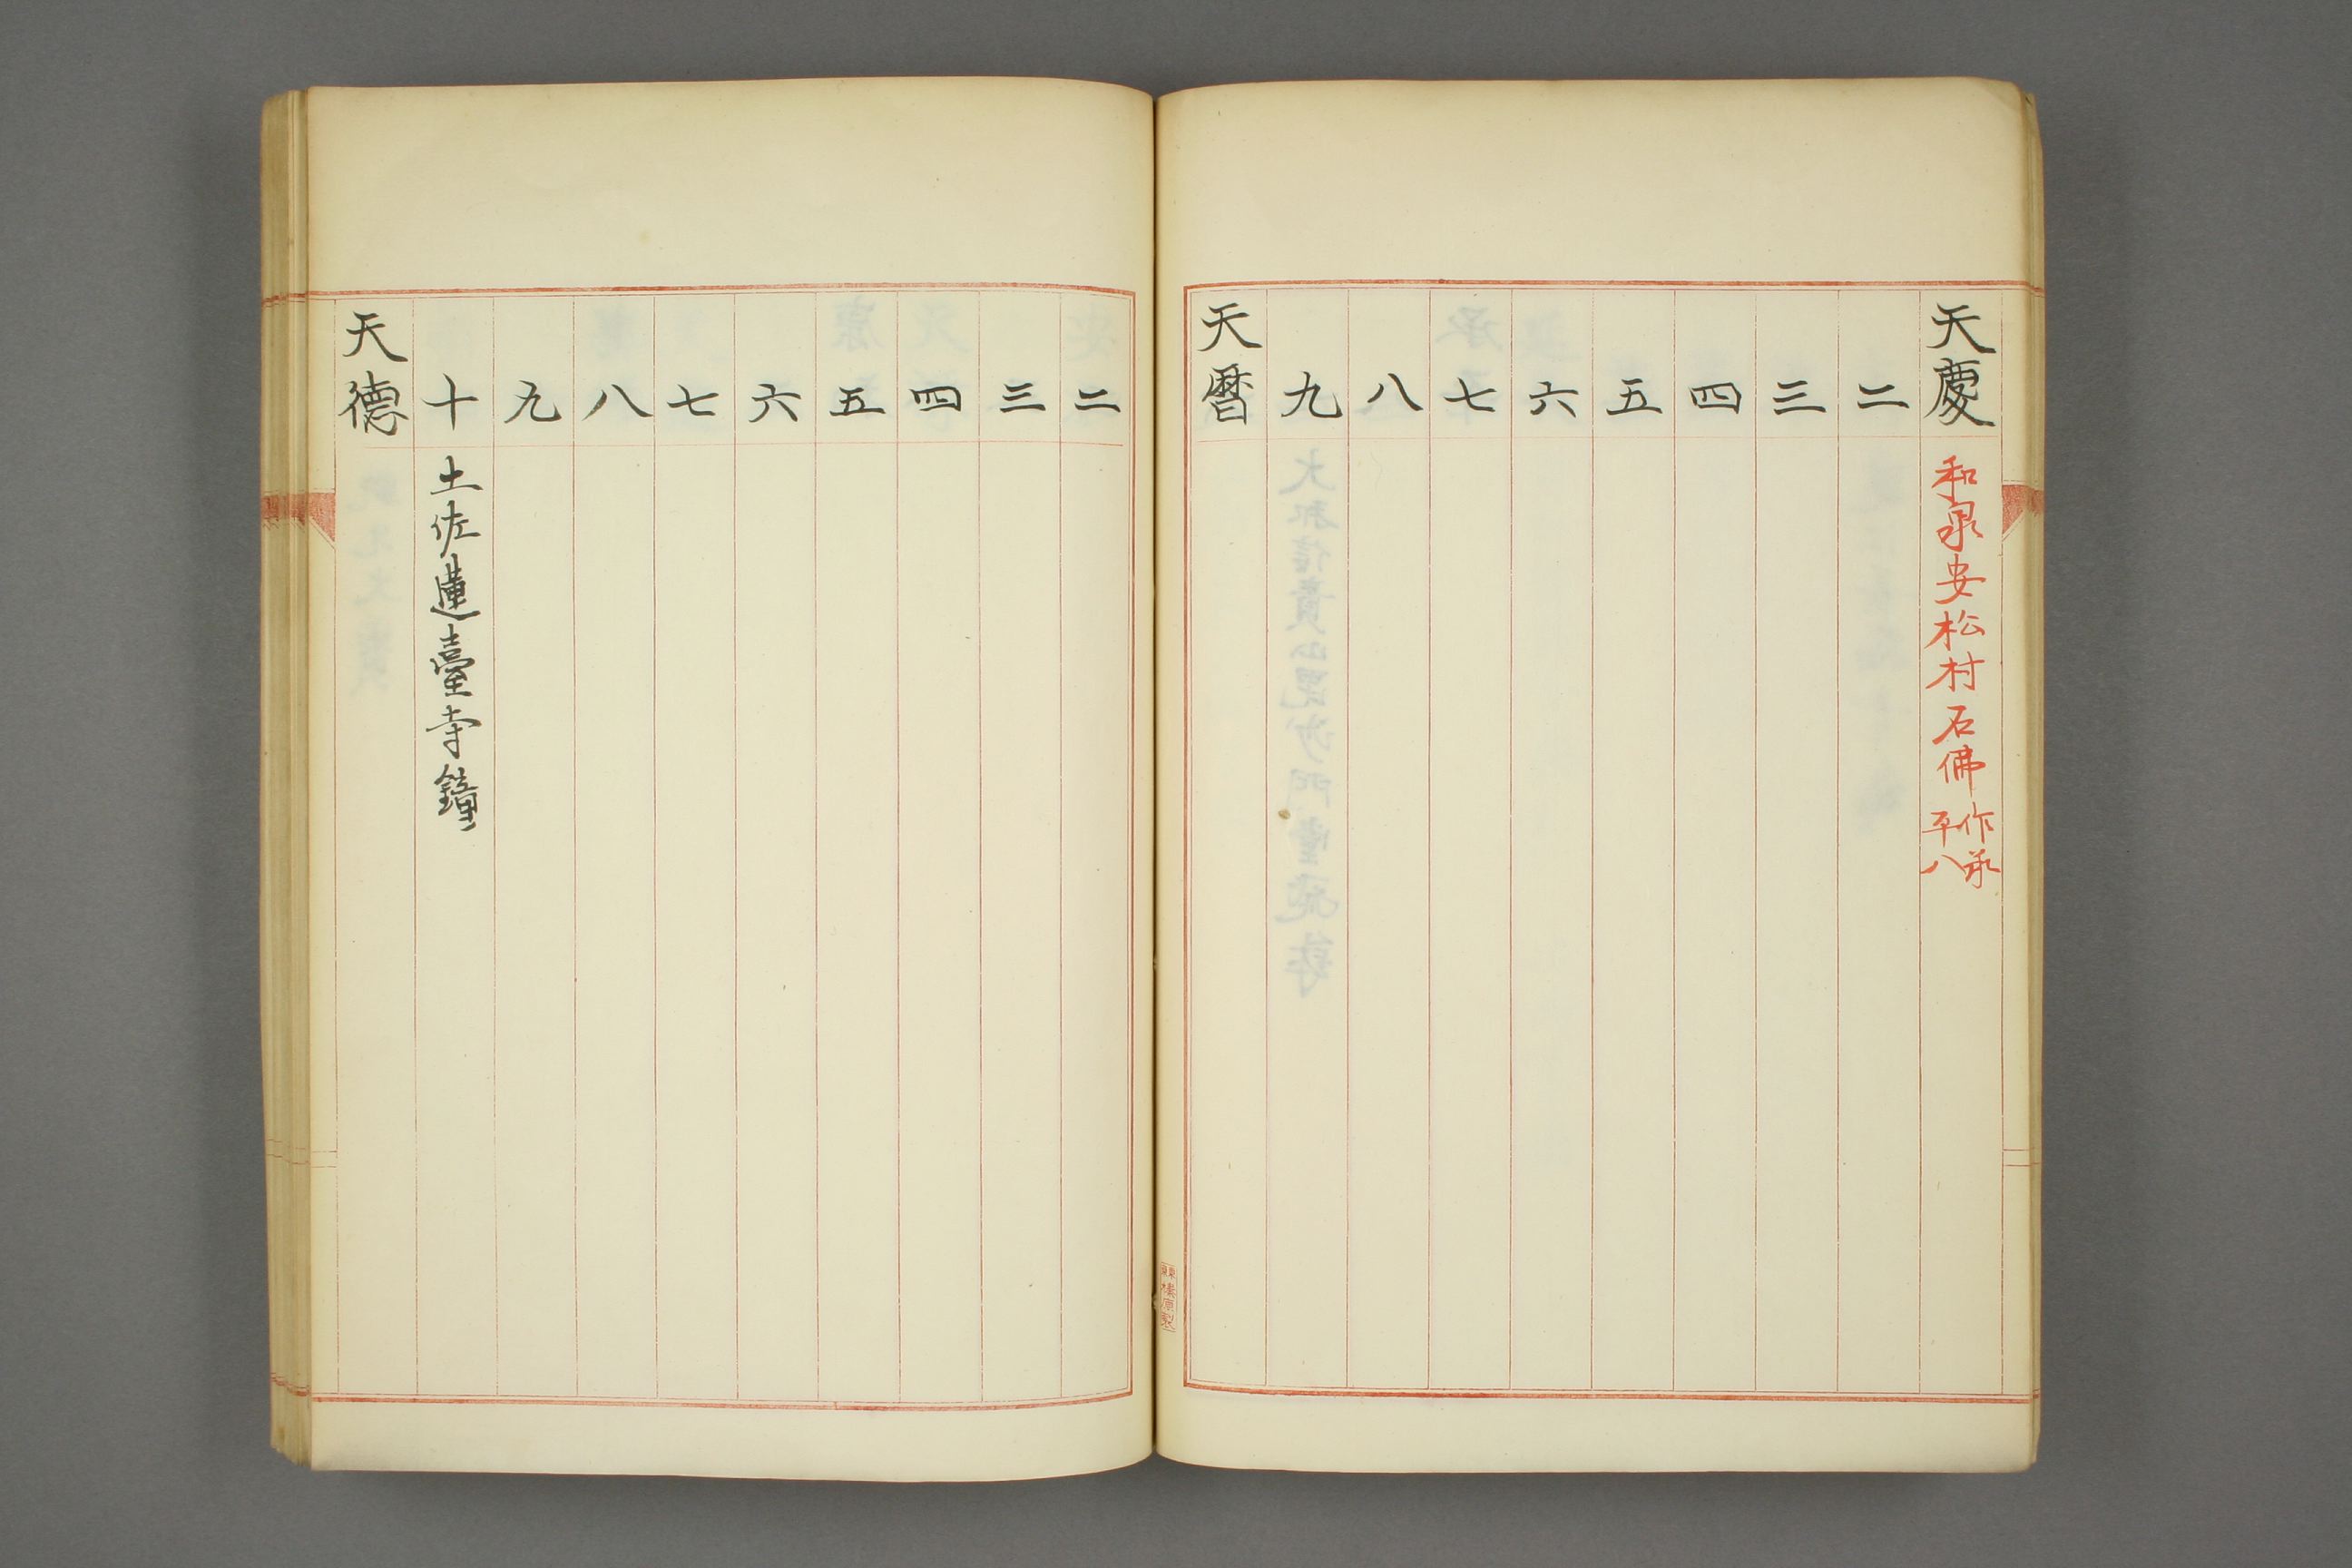 天慶 和泉安松村石佛 作承平八
二
三
四
五
六
七
八
九
天暦
二
三
四
五
六
七
八
九
十 土佐蓮臺寺鐘
天德